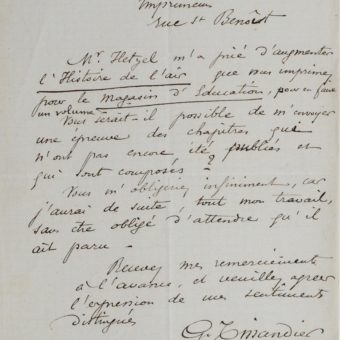 Imprimeur
rue St Benoît
Mr. Hetzel m'a prié d'augmenter
l'Histoire de l'air que vous imprimez
pour le Magasin d'Education, pour en faire
un volume.
Vous serait-il possible de m'envoyer
une épreuve des chapitres qui
n'ont pas encore été publiés et
qui sont composés ?
Vous m'obligeriez infiniment, car
j'aurai de suite, tout mon travail,
sans être obligé d'attendre qu'il
ait paru -
Recevez mes remerciements
à l'avance, et veuillez agréer
l'expression de mes sentiments
distingués
G. Tissandier